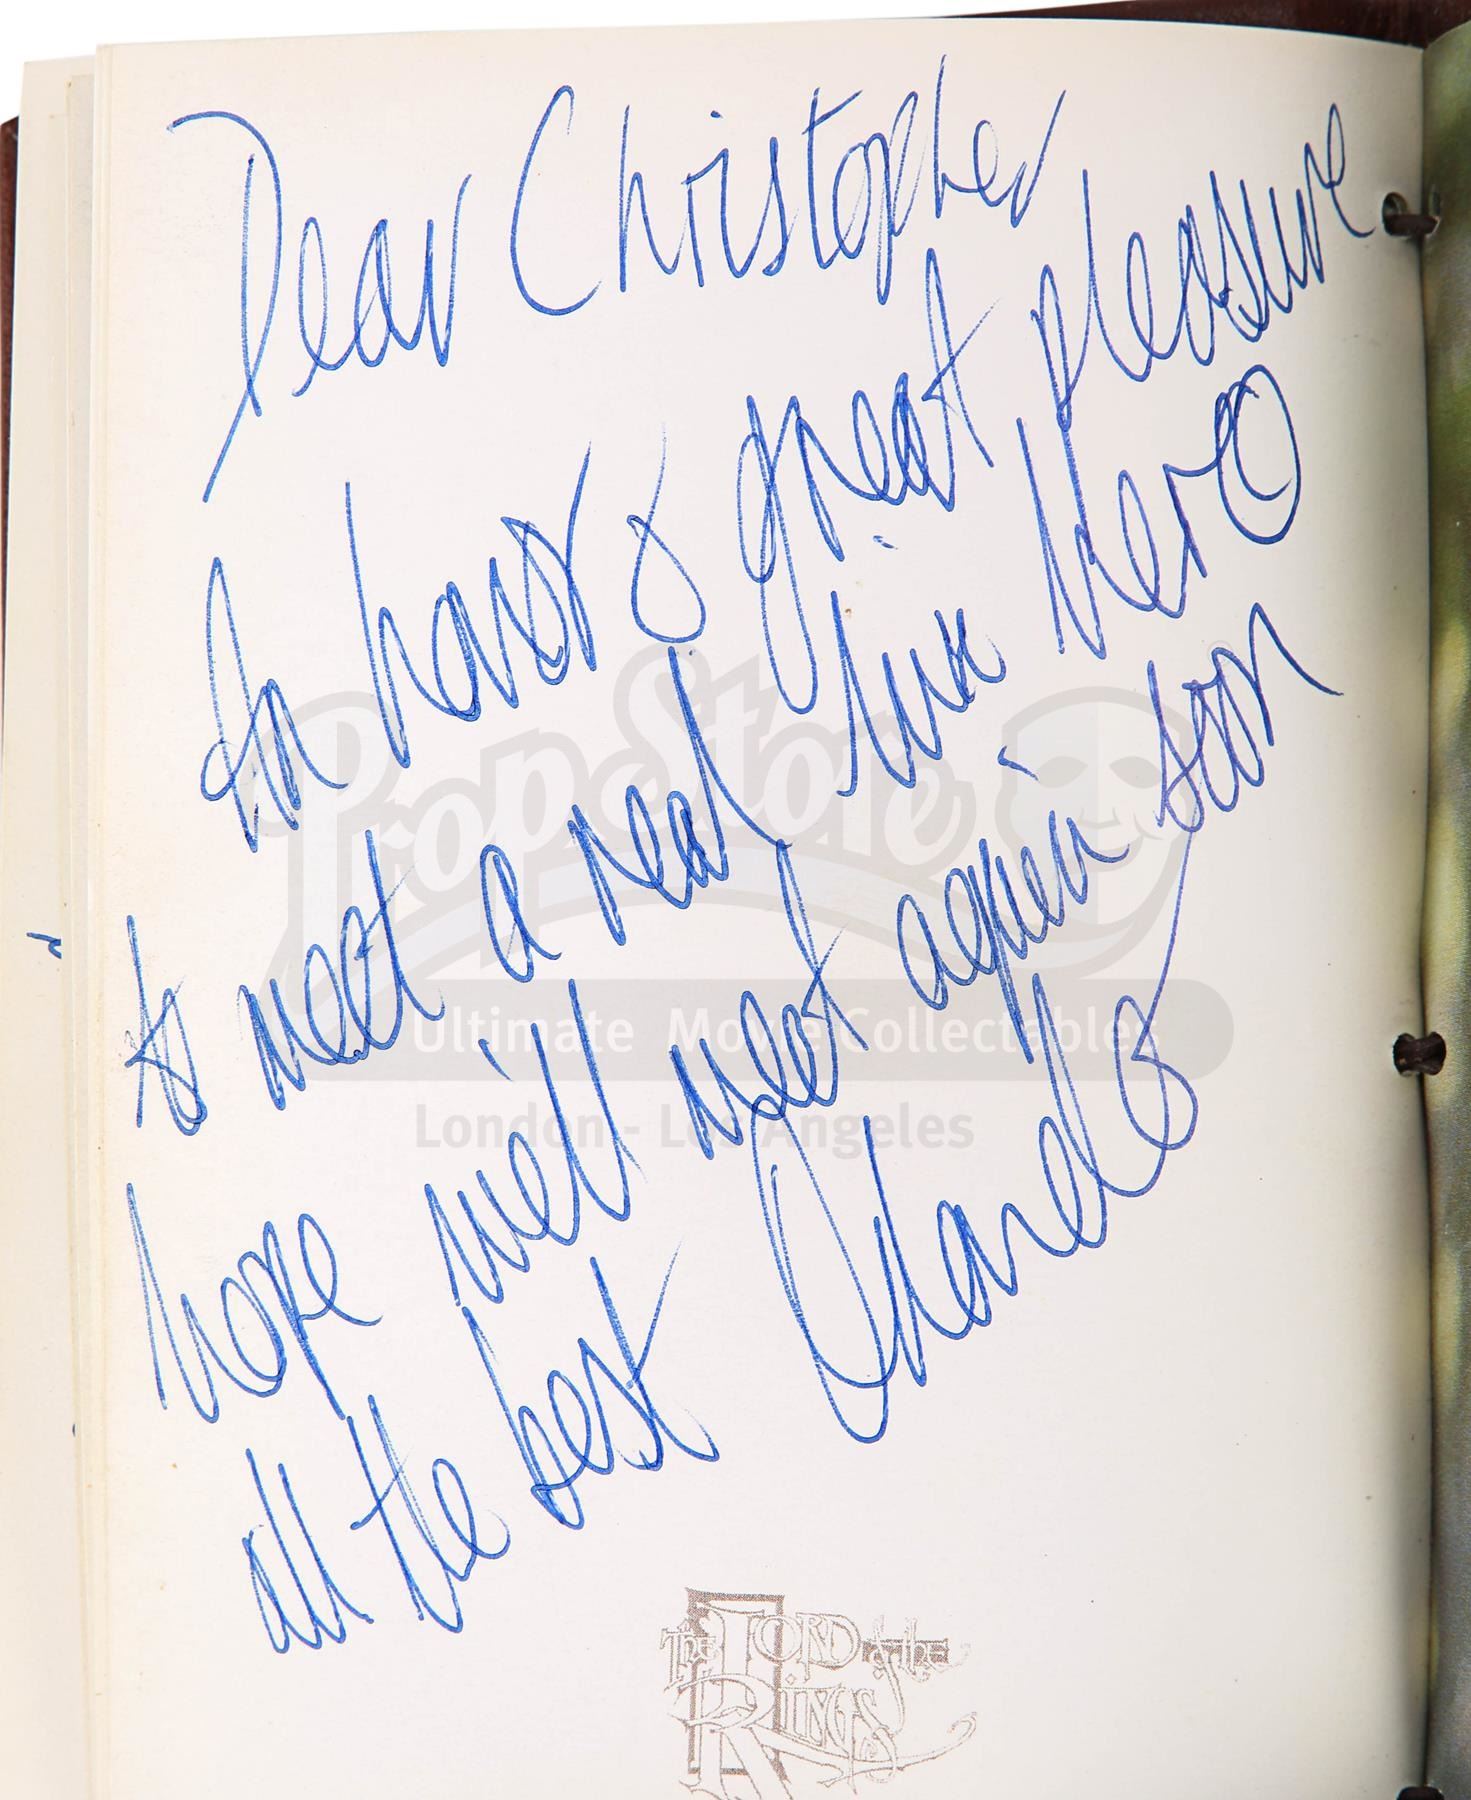 Dear Christopher
An honor & great pleasure
to meet a real live Hero
hope we'll meet again soon
all the best
PropStore
Ultimate Movie Collectables
London - Los Angeles
The Lord of the Rings